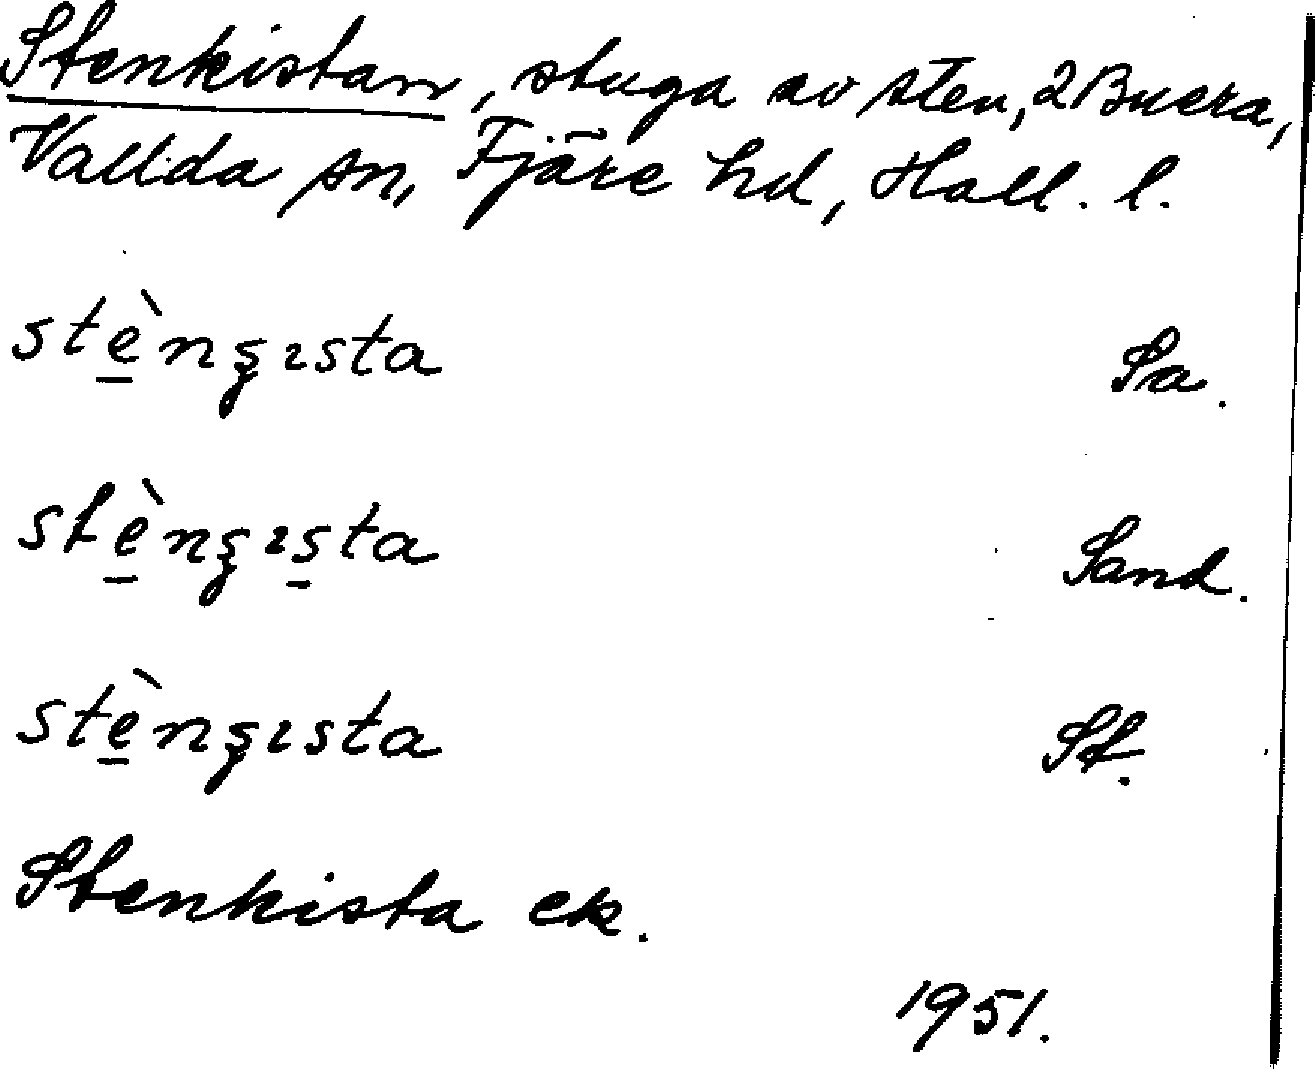 Stenkistan, stuga av sten, 2 Buera,
Vallda sn, Fjäre hd, Hall. l.
stè̱nʂɩsta Sa.
stè̱nʂɩs̱ta Sand.
stè̱nʂɩsta St.
Stenkista ek.
1951.